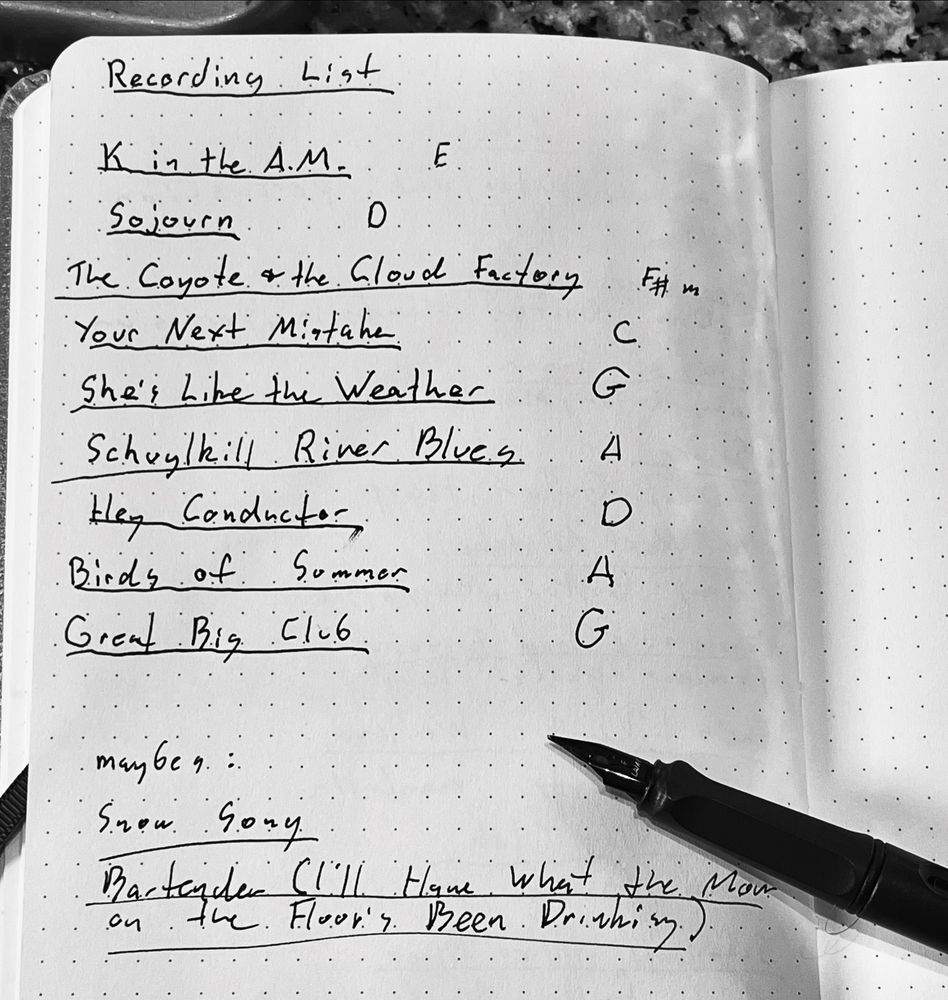 Recording List
K in the A.M. E
Sojourn D
The Coyote & the Cloud Factory F# m
Your Next Mistake C
She's Like the Weather G
Schuylkill River Blues A
Hey Conductor D
Birds of Summer A
Great Big Club G
maybes:
Snow Song
Bartender (I'll Have What the Man
on the Floor's Been Drinking)